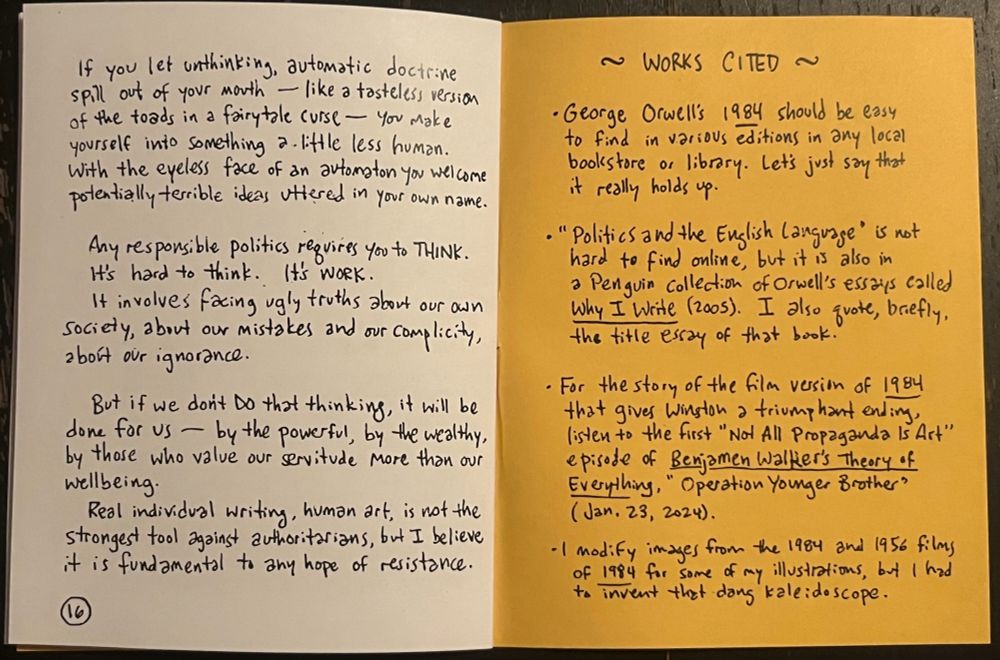 If you let unthinking, automatic doctrine
spill out of your mouth — like a tasteless version
of the toads in a fairytale curse — you make
yourself into something a little less human.
With the eyeless face of an automaton you welcome
potentially terrible ideas uttered in your own name.
Any responsible politics requires you to THINK.
It's hard to think. It's WORK.
It involves facing ugly truths about our own
society, about our mistakes and our complicity,
about our ignorance.
But if we don't DO that thinking, it will be
done for us — by the powerful, by the wealthy,
by those who value our servitude more than our
wellbeing.
Real individual writing, human art, is not the
strongest tool against authoritarians, but I believe
it is fundamental to any hope of resistance.
16
~ WORKS CITED ~
• George Orwell's 1984 should be easy
to find in various editions in any local
bookstore or library. Let's just say that
it really holds up.
• "Politics and the English Language" is not
hard to find online, but it is also in
a Penguin collection of Orwell's essays called
Why I Write (2005). I also quote, briefly,
the title essay of that book.
• For the story of the film version of 1984
that gives Winston a triumphant ending,
listen to the first "Not All Propaganda Is Art"
episode of Benjamen Walker's Theory of
Everything, "Operation Younger Brother"
(Jan. 23, 2024).
• I modify images from the 1984 and 1956 films
of 1984 for some of my illustrations, but I had
to invent that dang kaleidoscope.